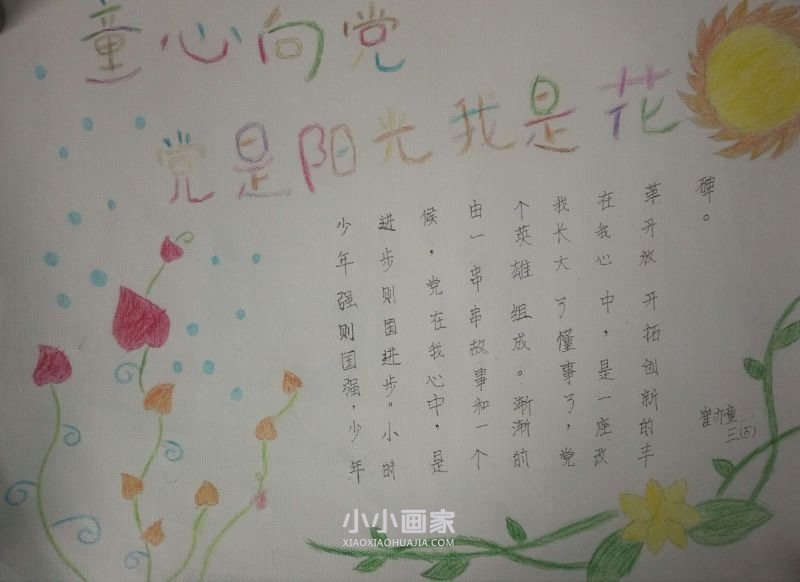 童心向党
党是阳光我是花
少年强则国强,少年
进步则国进步。小时
候,党在我心中,是
由一串串故事和一个
个英雄组成。渐渐的
我长大了懂事了,党
在我心中,是一座改
革开放开拓创新的丰
碑。
崔亦童
三(5)
小小画家
XIAOXIAOHUAJIA.COM